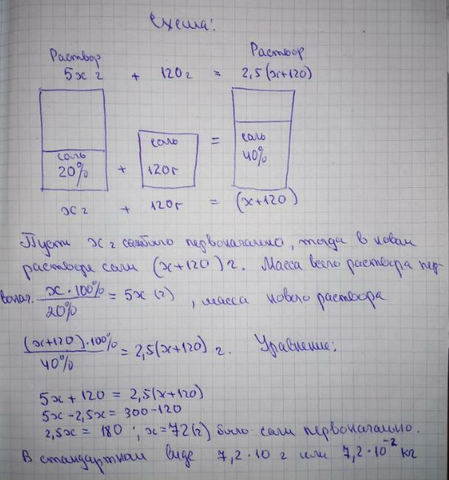 Схема:
Раствор Раствор
5x г + 120г = 2,5(x+120)
соль 20% + соль 120г = соль 40%
x г + 120г = (x+120)
Пусть x г соли было первоначально, тогда в новом
растворе соли (x+120) г. Масса всего раствора пер-
вонач. x·100%/20% = 5x (г), масса нового раствора
(x+120)·100%/40% = 2,5(x+120) г. Уравнение:
5x+120 = 2,5(x+120)
5x-2,5x = 300-120
2,5x = 180; x=72(г) было соли первоначально.
В стандартном виде 7,2·10 г или 7,2·10⁻² кг